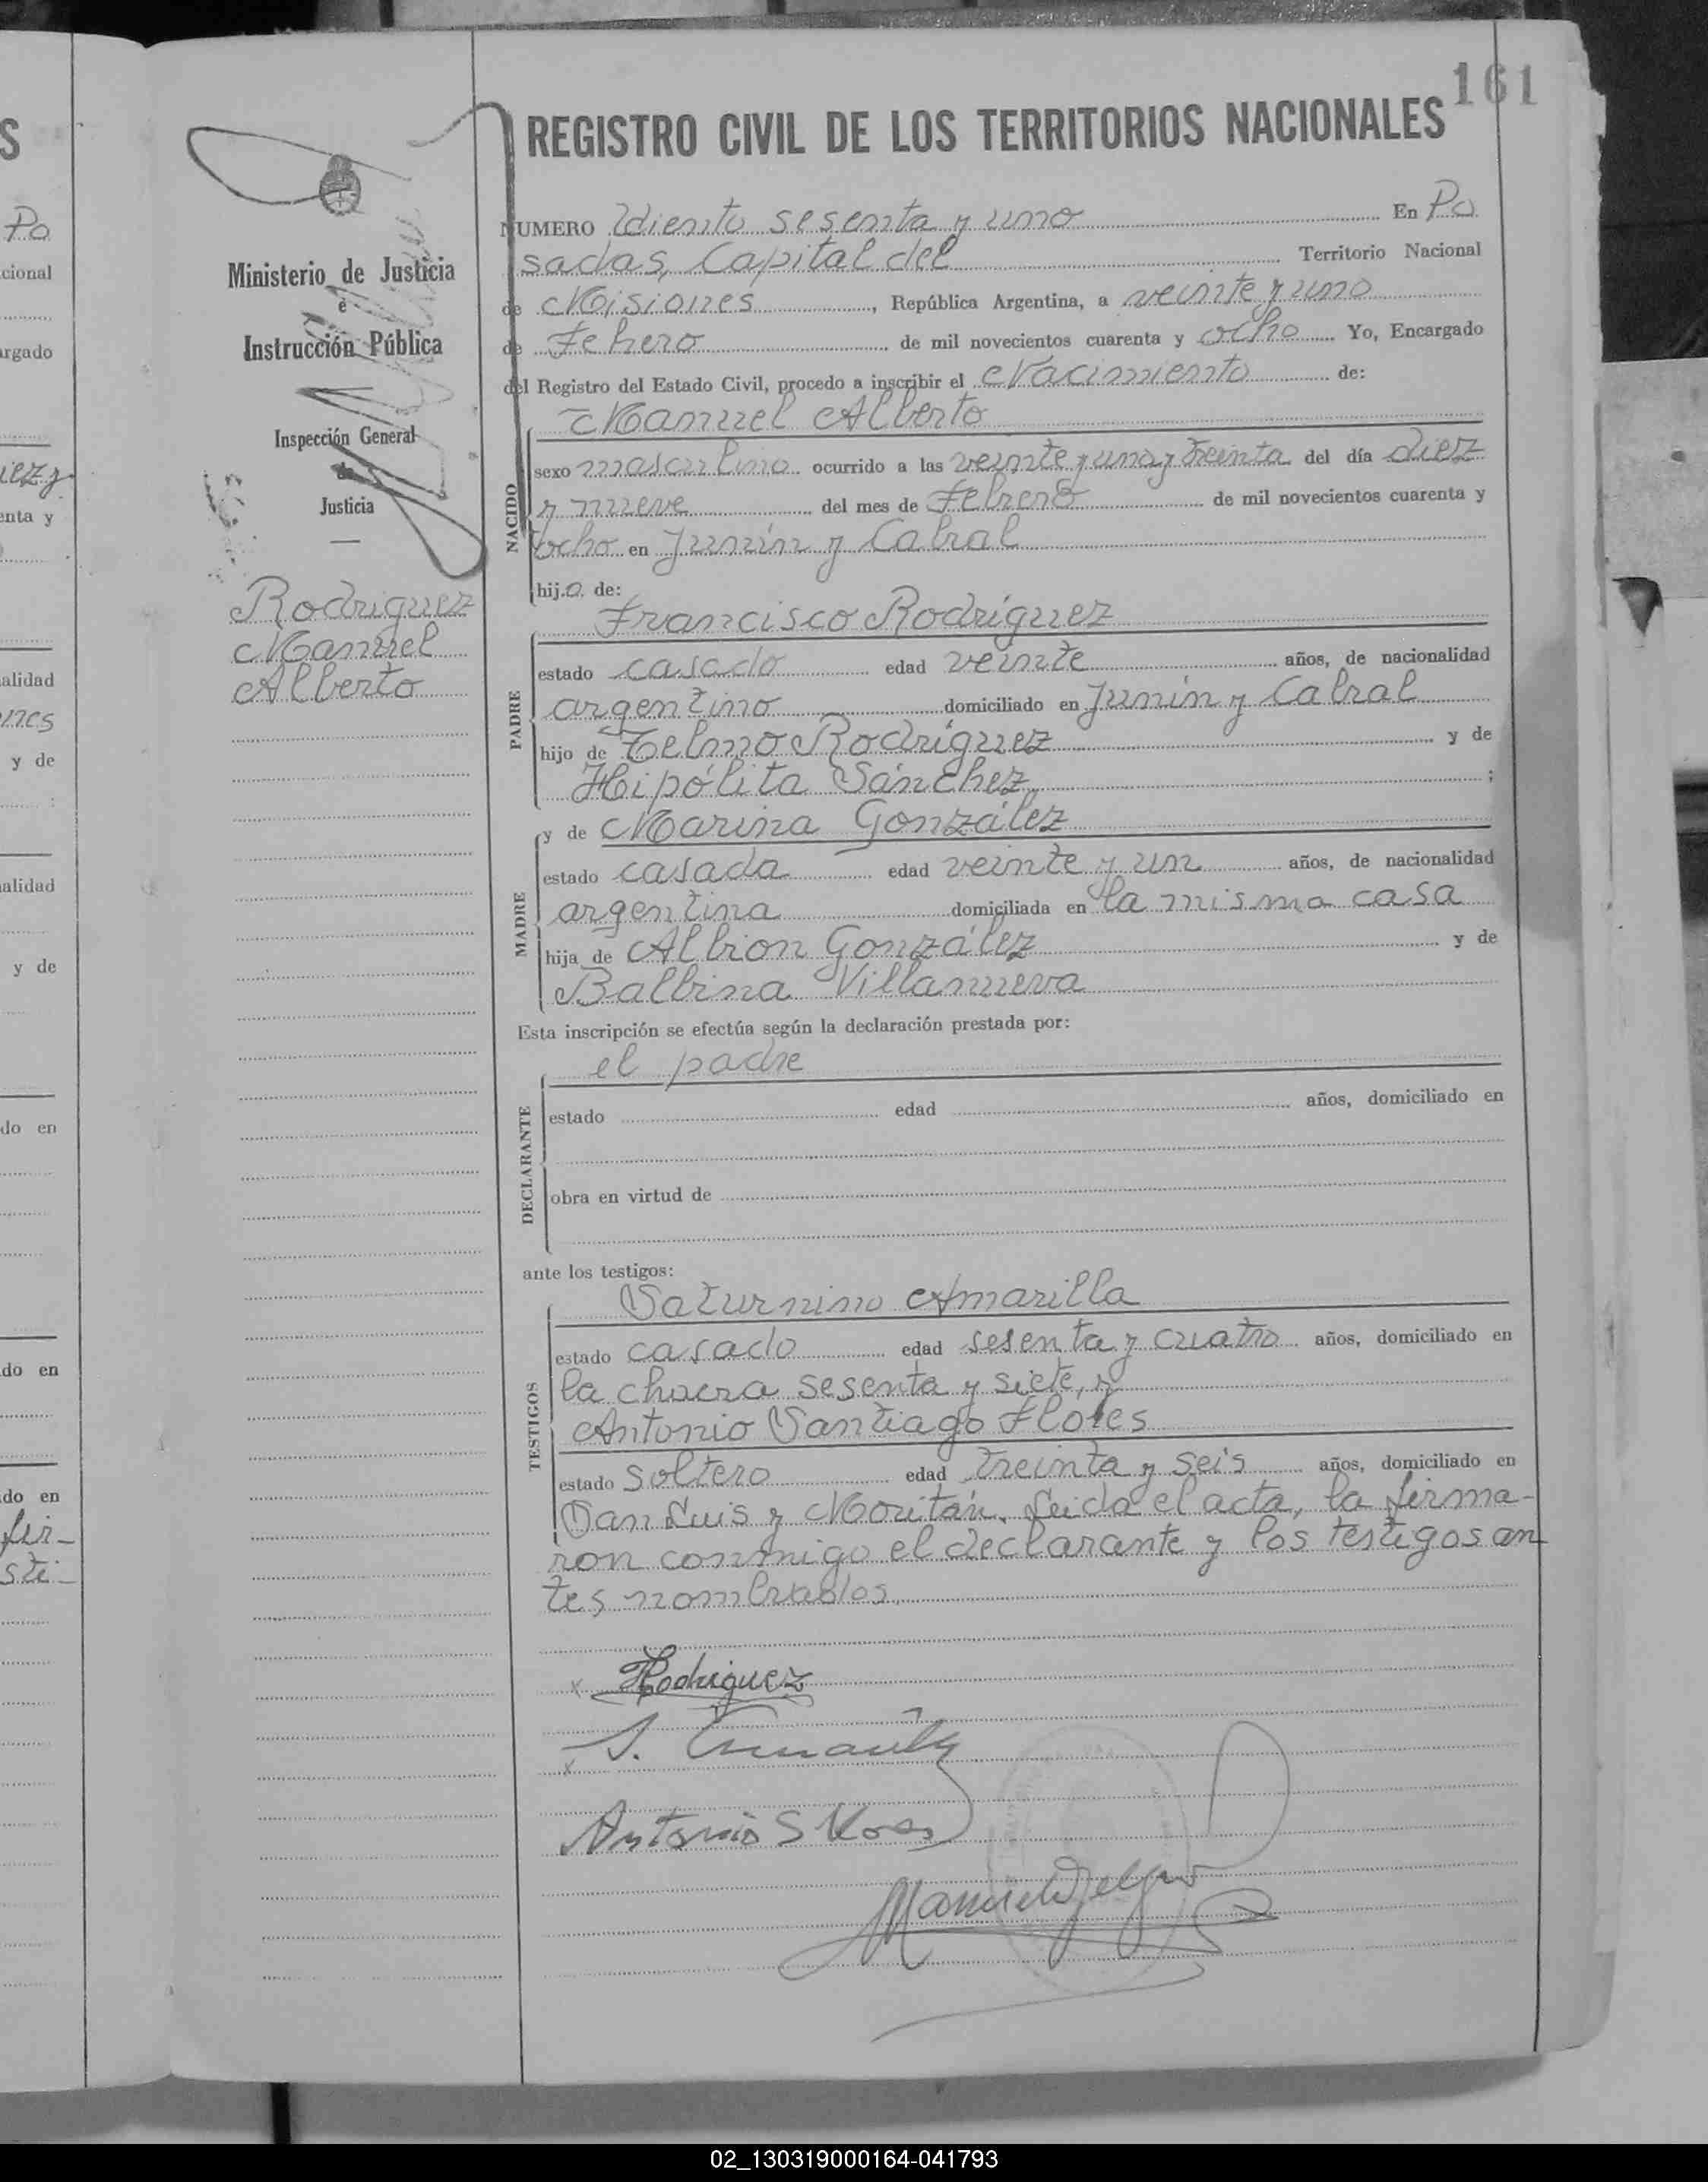 161
REGISTRO CIVIL DE LOS TERRITORIOS NACIONALES
NUMERO Ciento sesenta y uno En Po
sadas, Capital del Territorio Nacional
de Misiones, República Argentina, a veinte y uno
de Febrero de mil novecientos cuarenta y ocho Yo, Encargado
del Registro del Estado Civil, procedo a inscribir el Nacimiento de:
Manuel Alberto
NACIDO
sexo masculino ocurrido a las veinte y una y treinta del día diez
y nueve del mes de Febrero de mil novecientos cuarenta y
ocho en Junín y Cabral
hijo de:
Francisco Rodríguez
PADRE
estado casado edad veinte años, de nacionalidad
argentino domiciliado en Junín y Cabral
hijo de Telmo Rodríguez y de
Hipólita Sánchez ;
y de Marina González
MADRE
estado casada edad veinte y un años, de nacionalidad
argentina domiciliada en la misma casa
hija de Albion González y de
Balbina Villanueva
Esta inscripción se efectúa según la declaración prestada por:
el padre
DECLARANTE
estado edad años, domiciliado en
obra en virtud de
ante los testigos:
Saturnino Amarilla
TESTIGOS
estado casado edad sesenta y cuatro años, domiciliado en
la chacra sesenta y siete, y
Antonio Santiago Flores
estado soltero edad treinta y seis años, domiciliado en
San Luis y Moritán. Leida el acta, la firma-
ron conmigo el declarante y los testigos an
tes nombrados
x Rodriguez
x S.
Antonio S
Manuel
Ministerio de Justicia
e
Instrucción Pública
Inspección General
de
Justicia
Rodriguez
Manuel
Alberto
S
Po
cional
argado
iez y
enta y
alidad
ones
y de
alidad
y de
do en
do en
do en
fir-
sti-
02_130319000164-041793